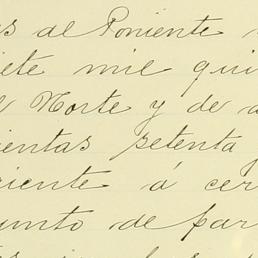 s al Poniente
iete mil qui
l Norte y de a
ientas setenta
riente á cer
unto de par